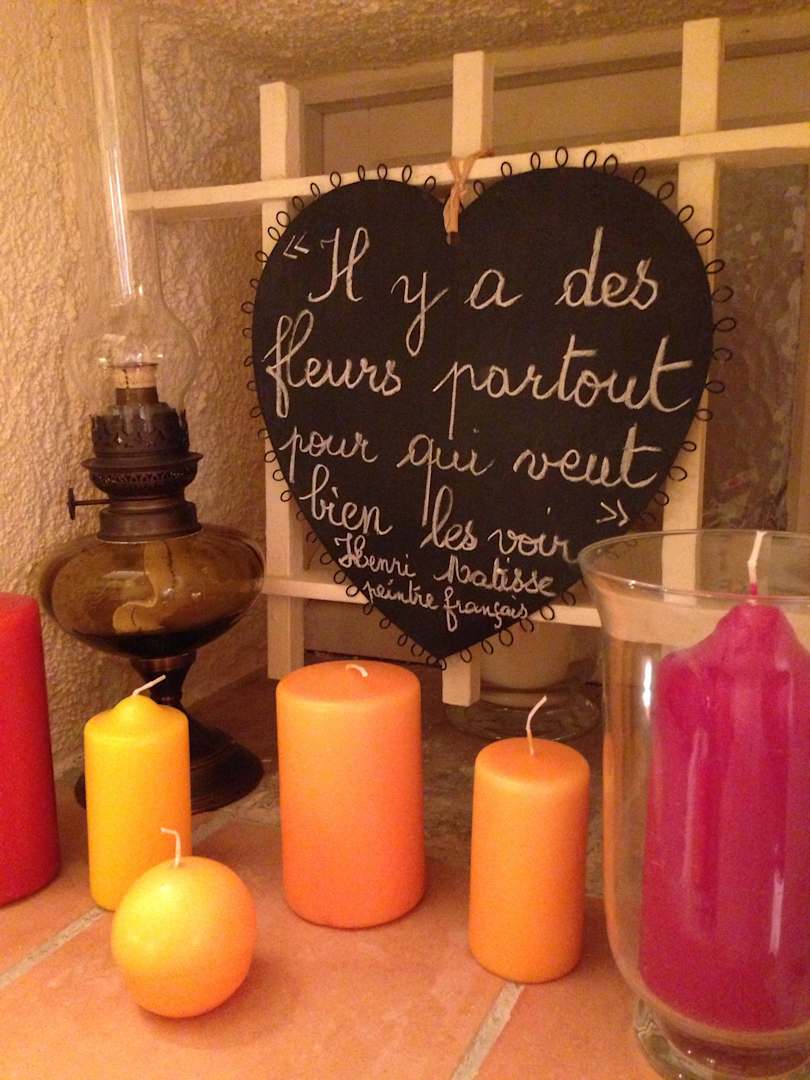 « Il y a des
fleurs partout
pour qui veut
bien les voir »
Henri Matisse
peintre français